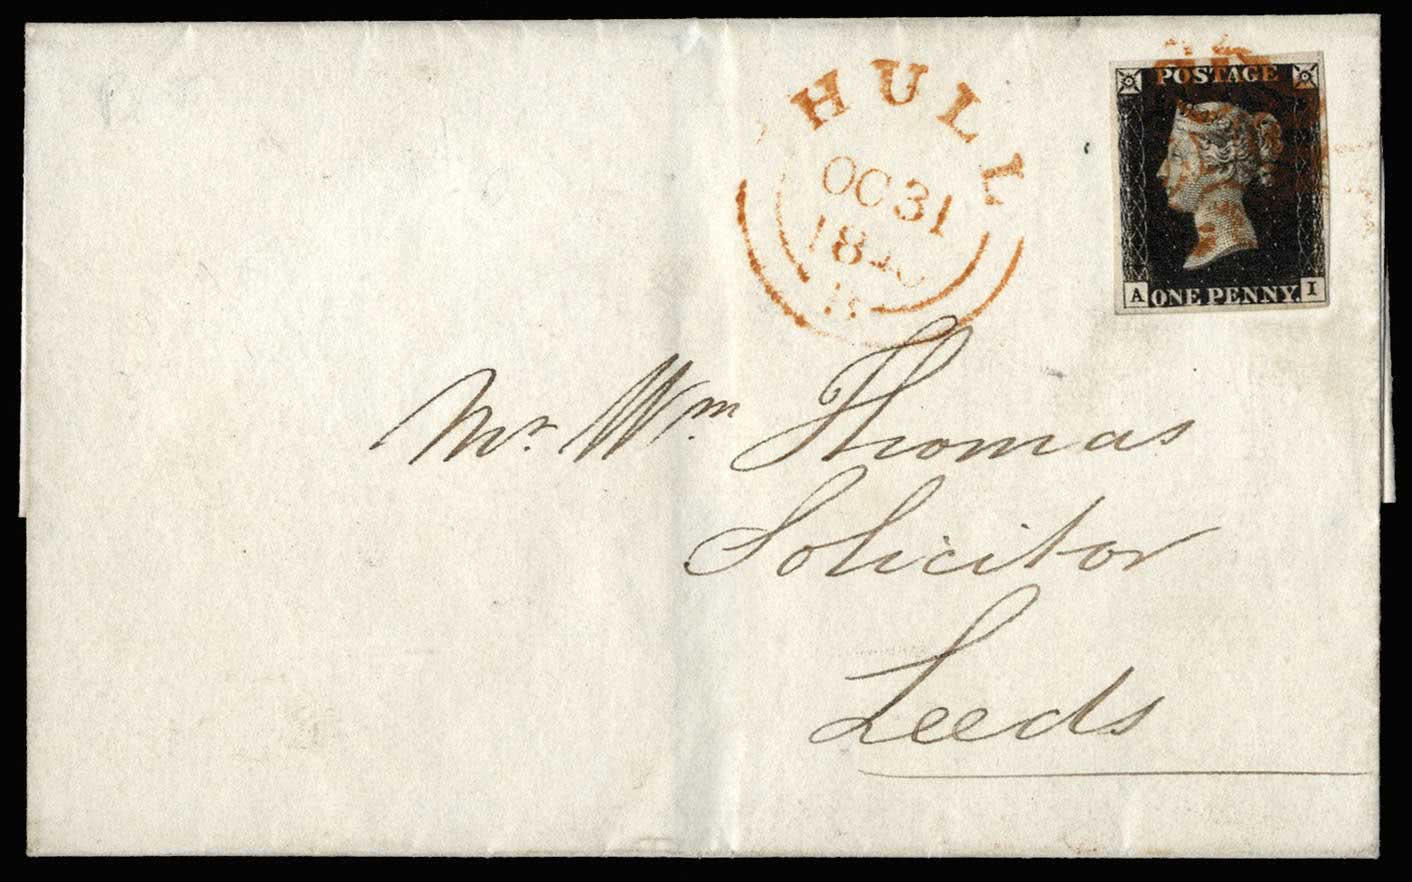 HULL
OC 31
1840
POSTAGE
A ONE PENNY. I
Mr. Wm Thomas
Solicitor
Leeds